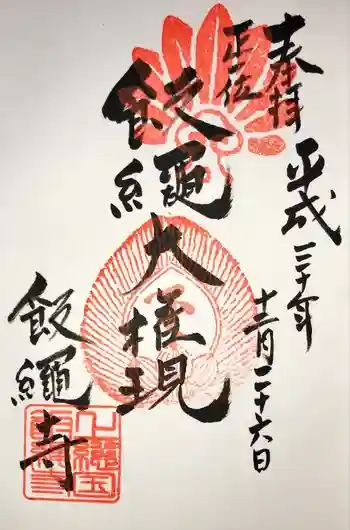 奉拝
正一位
平成三十年
十二月二十六日
飯縄大権現
飯縄寺